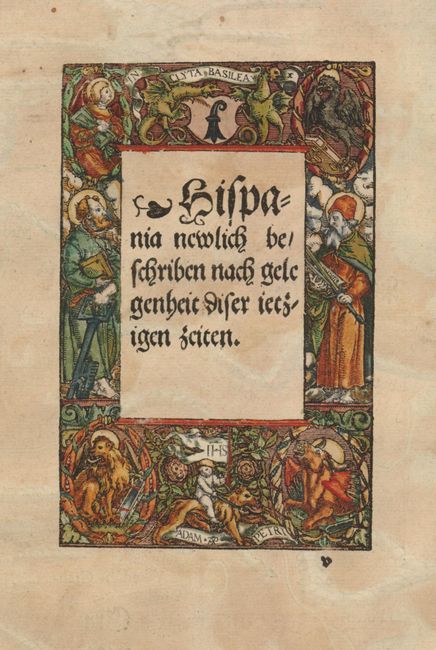 IN CLYTA BASILEA
Hiſpa⸗
nia newlich be/
ſchriben nach gele
genheit diſer ietz⸗
igen zeiten.
ADAM PETRI
v